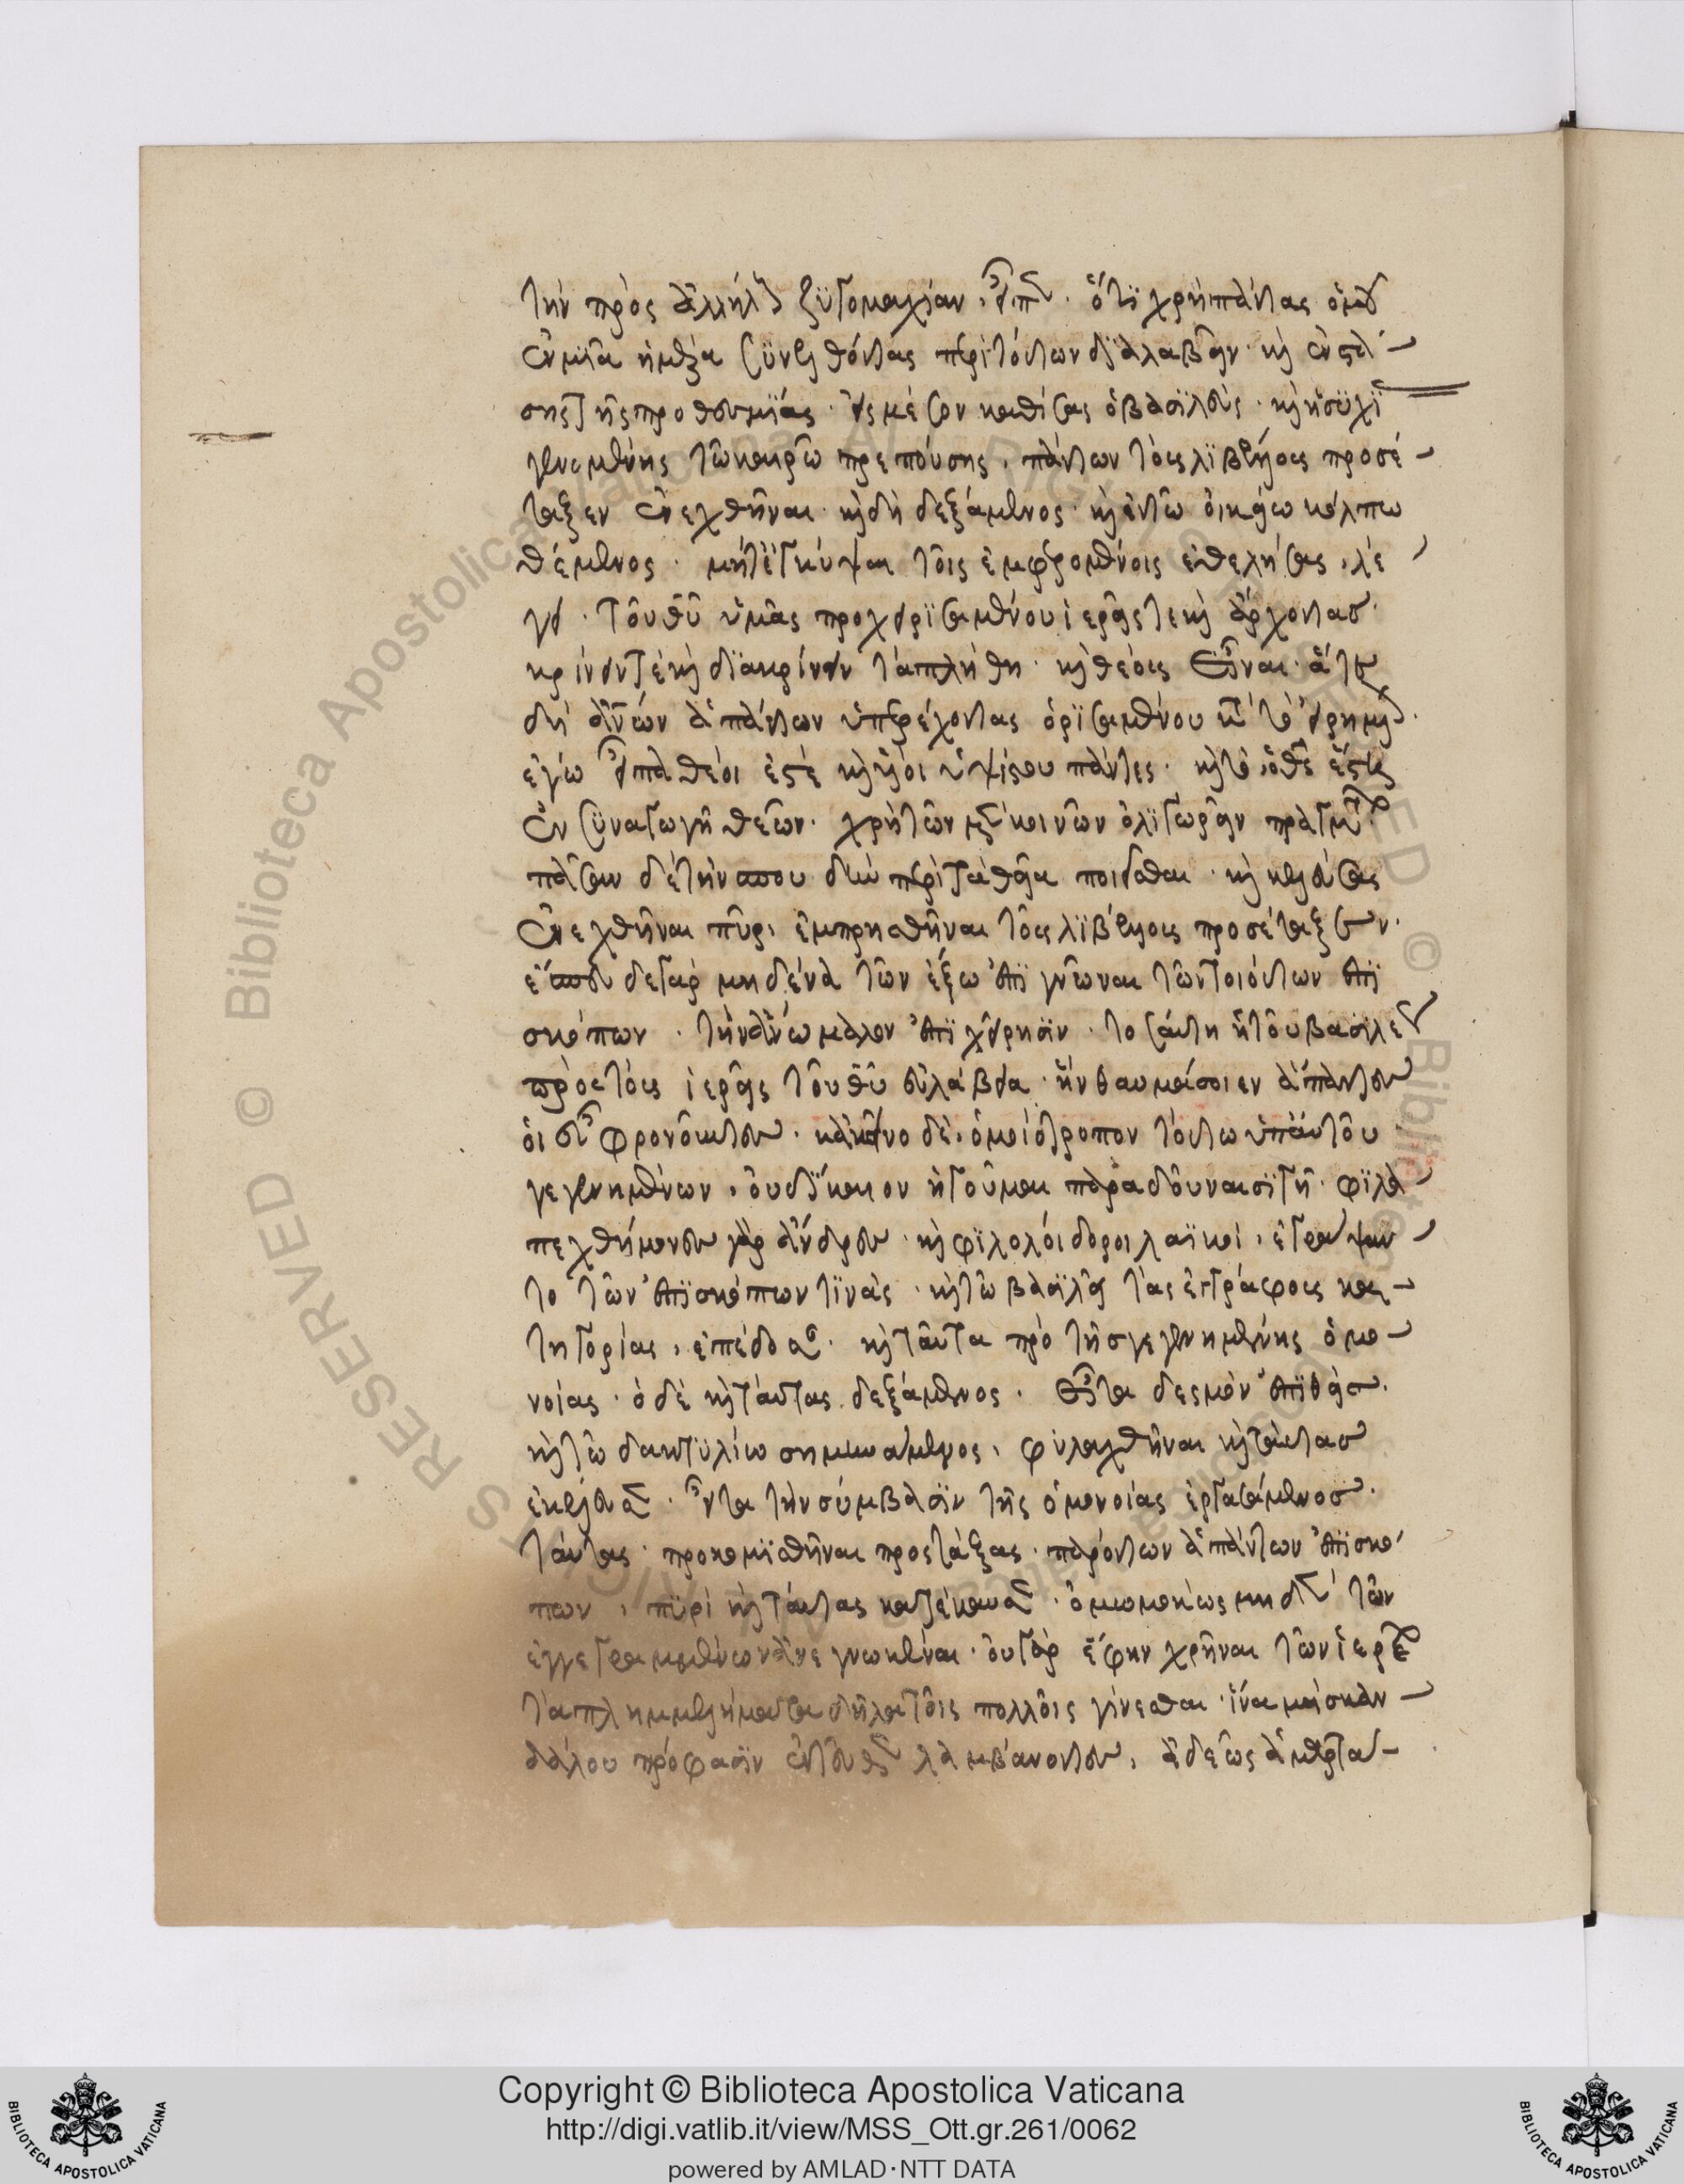 τὴν πρὸς ἀλλήλους ζυγομαχίαν, εἶπεν. ὅτι χρὴ πάντας ὁμοῦ
ἐν μιᾷ ἡμέρα συνελθόντας περὶ τούτων διαλαβεῖν. καὶ ἐνστά
σης τῆς προθεσμίας. εἰς μέσον καθίσας ὁ βασιλεὺς. καὶ ἡσυχί
γενομένης τῶ καιρῶ πρεπούσης, πάντων τοὺς λιβέλλους προσέ
ταξεν ἐνεχθῆναι. καὶ δὴ δεξάμενος. καὶ ἐν τῶ οἰκείω κόλπω
θέμενος. μήτ' ἐγκύψαι τοῖς ἐμφερομένοις ἐθελήσας, λέ
γει. τοῦ θεοῦ ὑμᾶς προχειρισαμένου ἱερεῖς τε καὶ ἄρχοντας.
κρίνειν τε καὶ διακρίνειν τὰ πλήθη. καὶ θεοὺς εἶναι. ἅτε
δὴ ἀνθρώπων ἁπάντων ὑπερέχοντας ὁρισαμένου κατὰ τὸ εἰρημένον.
ἐγὼ εἶπα θεοί ἐστέ καὶ υἱοὶ ὑψίστου πάντες. καὶ τὸ, ὁ θεὸς ἔστη
ἐν συναγωγῆ θεῶν. χρὴ τῶν μὲν κοινῶν ὀλιγωρεῖν πραγμάτων
πᾶσαν δὲ τὴν σπουδὴν περὶ τὰ θεῖα ποιεῖσθαι. καὶ κελεύσας
ἐνεχθῆναι πῦρ, ἐμπρησθῆναι τοὺς λιβέλλους προσέταξεν.
ἔσπευδε γὰρ μηδένα τῶν ἔξω ἐπιγνῶναι τῶν τοιούτων ἐπι
σκόπων. τοσαύτη ἡ τοῦ βασιλέως
πρὸς τοὺς ἱερεῖς τοῦ θεοῦ εὐλάβεια. ἣν θαυμάσοιεν ἅπαντες
οἱ εὖ φρονοῦντες. κἀκεῖνο δὲ, ὁμοιότροπον τούτω ὑπ' αὐτοῦ
γεγενημένων, οὐ δίκαιον ἡγοῦμαι παραδοῦναι σιγῆ. φιλα
πεχθήμονες γὰρ ἄνδρες. καὶ φιλολοίδοροι λαϊκοὶ, ἐγράψαν
το τῶν ἐπισκόπων τινὰς. καὶ τῶ βασιλεῖ τὰς ἐγγράφους κα
τηγορίας, ἐπέδοσαν. καὶ ταῦτα πρὸ τῆς γεγενημένης ὁμο
νοίας. ὁ δὲ καὶ ταύτας δεξάμενος. εἶτα δεσμὸν ἐπιθείς.
καὶ τῶ δακτυλίω σημηνάμενος, φυλαχθῆναι καὶ ταύτας
ἐκέλευσεν. εἶτα τὴν σύμβασιν τῆς ὁμονοίας ἐργασάμενος.
ταύτας. προκομισθῆναι προστάξας. παρόντων ἁπάντων ἐπισκό
πων, πυρὶ καὶ ταύτας κατέκαυσεν. ὀμωμοκὼς μηδὲν τῶν
ἐγγεγραμμένων ἀνεγνωκέναι. οὐ γὰρ ἔφην χρῆναι τῶν ἱερέων
τὰ πλημμελήματα δῆλα τοῖς πολλοῖς γίνεσθαι. ἵνα μὴ σκαν
δάλου πρόφασιν ἐντεῦθεν λαμβάνοντες, ἀδεῶς ἁμαρτά
Copyright © Biblioteca Apostolica Vaticana
http://digi.vatlib.it/view/MSS_Ott.gr.261/0062
powered by AMLAD·NTT DATA